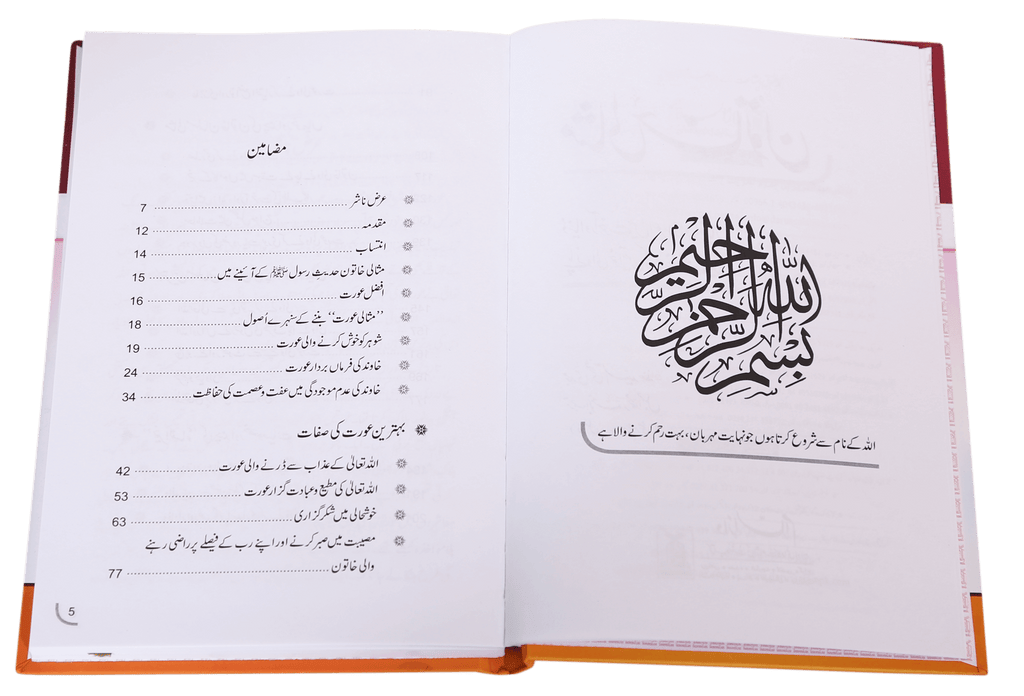 بسم الله الرحمن الرحيم
اللہ کے نام سے شروع کرتا ہوں جو نہایت مہربان، بہت رحم کرنے والا ہے
مضامین
عرض ناشر ........ 7
مقدمہ ........ 12
انتساب ........ 14
مثالی خاتون حدیثِ رسول ﷺ کے آئینے میں ........ 15
افضل عورت ........ 16
’’مثالی عورت‘‘ بننے کے سنہرے اُصول ........ 18
شوہر کو خوش کرنے والی عورت ........ 19
خاوند کی فرماں بردار عورت ........ 24
خاوند کی عدم موجودگی میں عفت و عصمت کی حفاظت ........ 34
بہترین عورت کی صفات
اللہ تعالیٰ کے عذاب سے ڈرنے والی عورت ........ 42
اللہ تعالیٰ کی مطیع و عبادت گزار عورت ........ 53
خوشحالی میں شکر گزاری ........ 63
مصیبت میں صبر کرنے اور اپنے رب کے فیصلے پر راضی رہنے
والی خاتون ........ 77
5